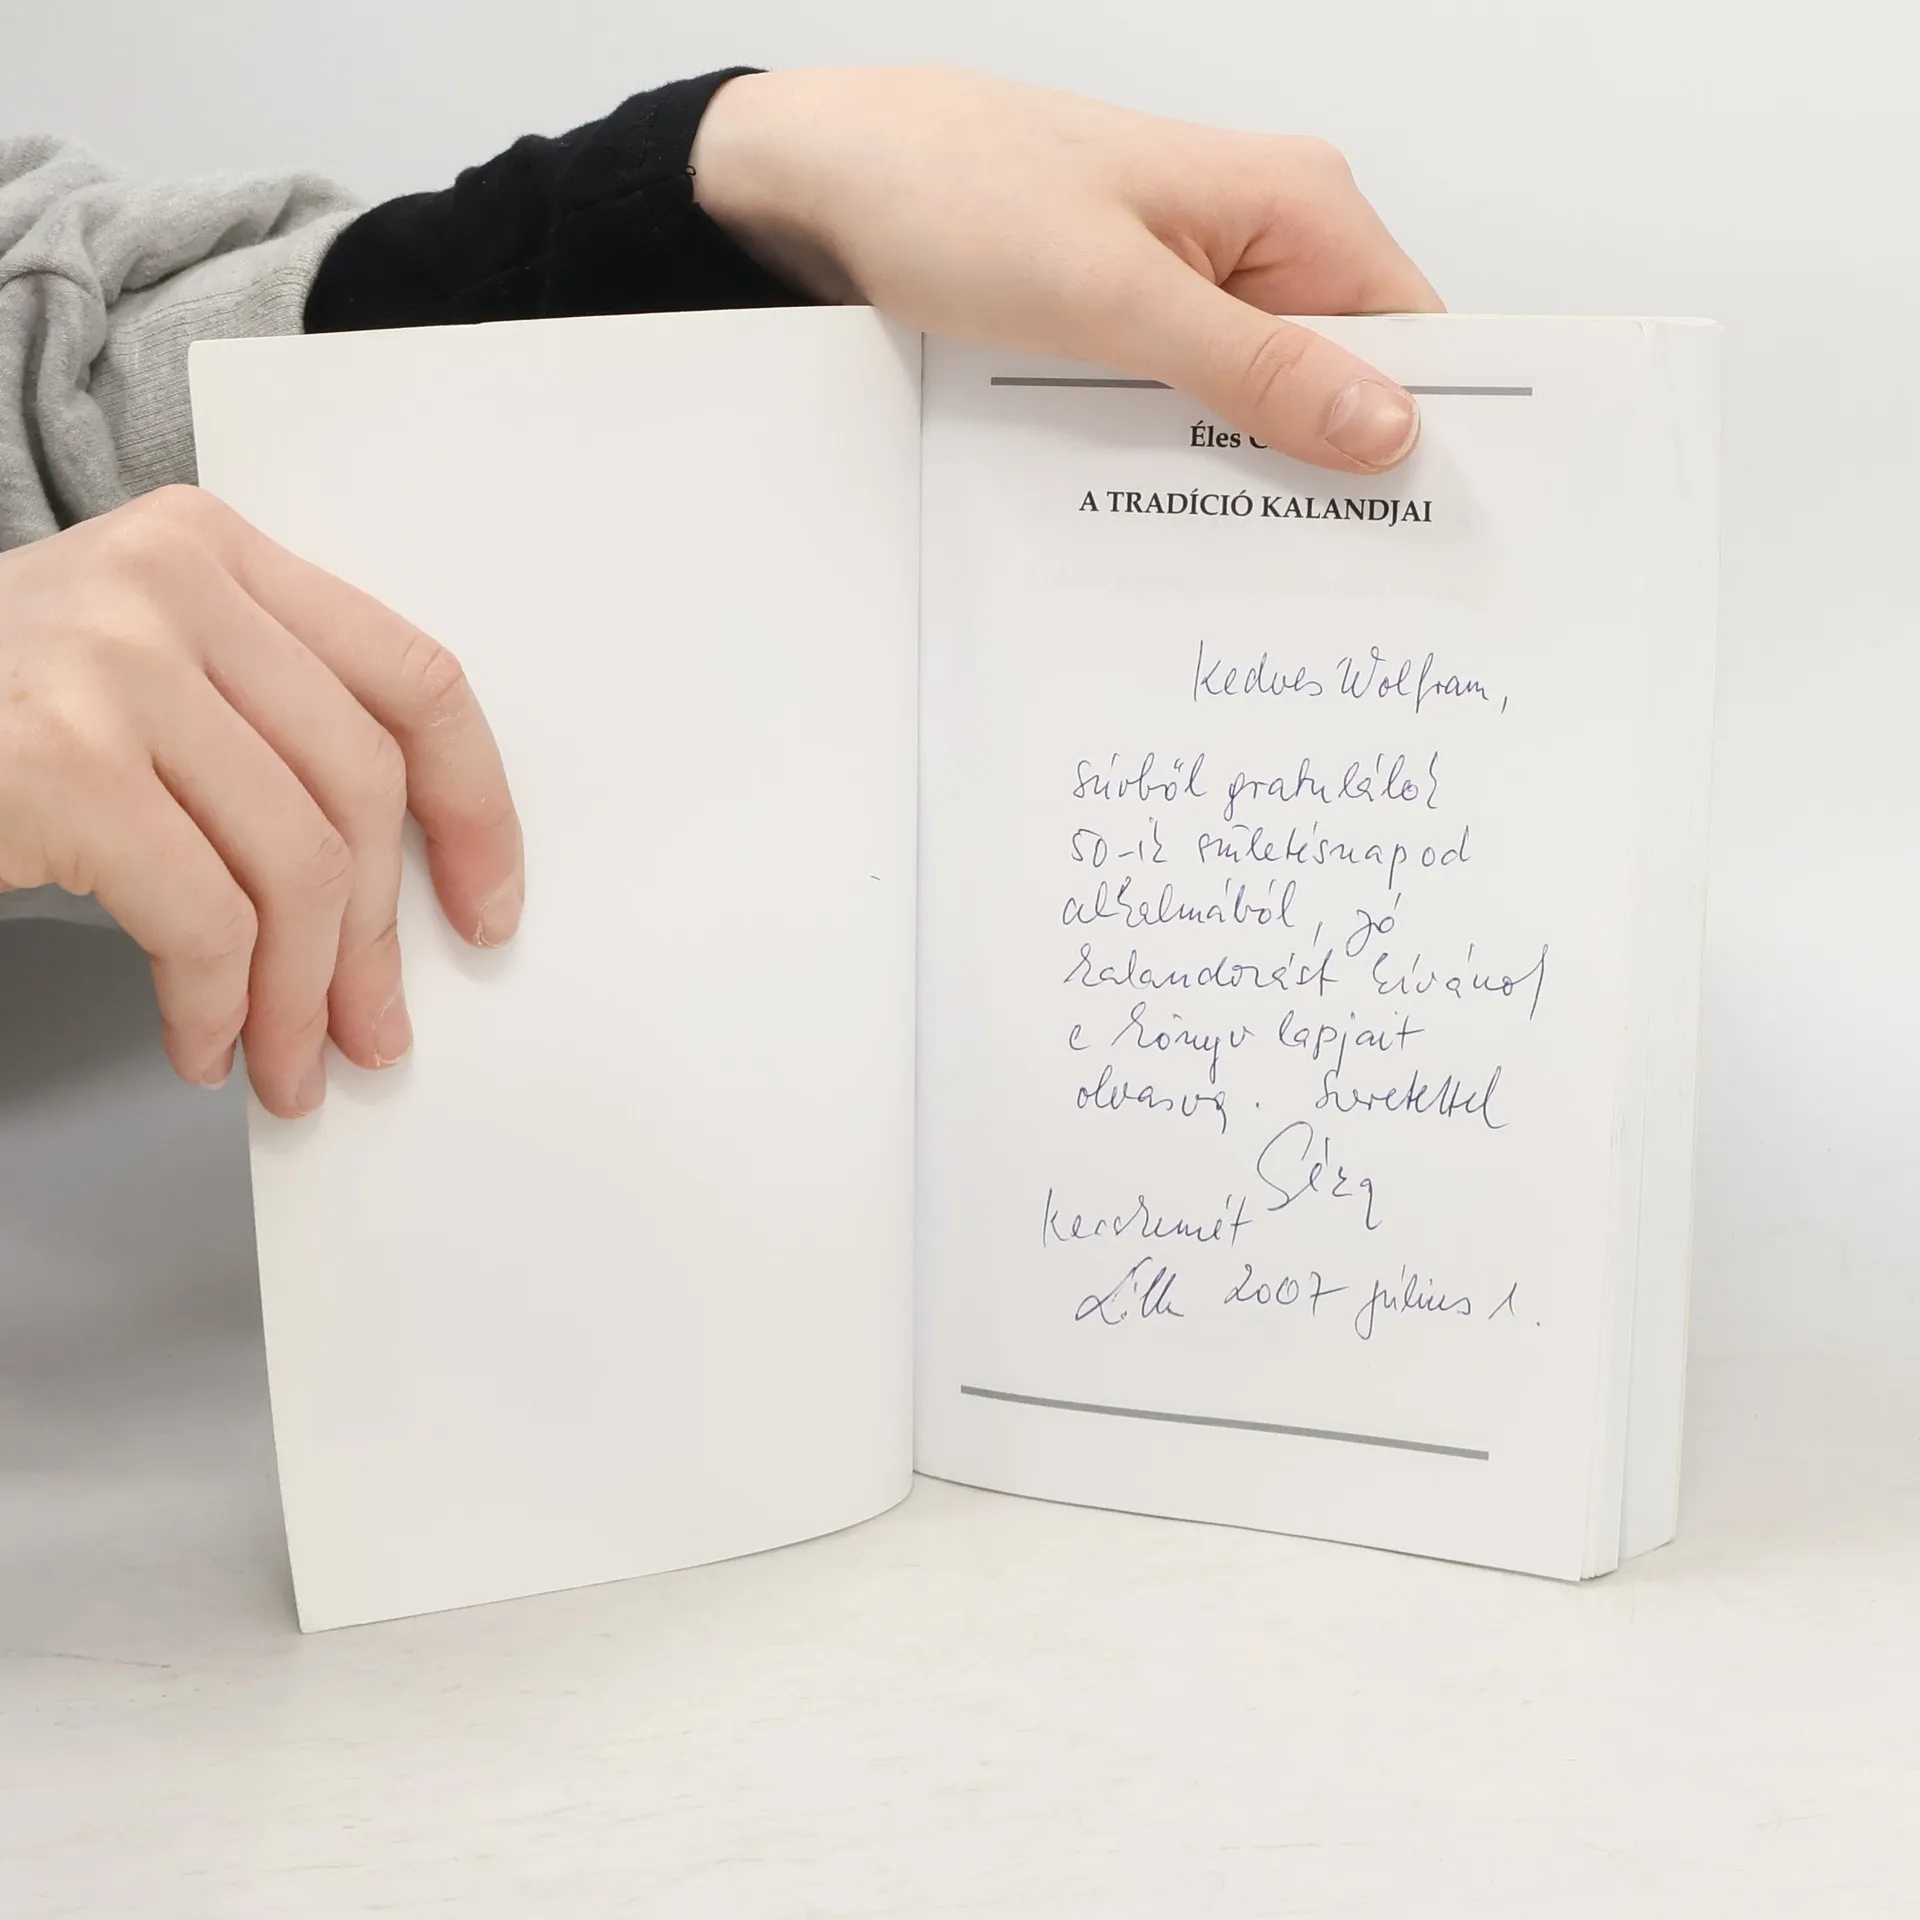 Éles
A TRADÍCIÓ KALANDJAI
Kedves Wolfram,
szívből gratulálok
50-ik születésnapod
alkalmából, jó
kalandozást kívánok
e könyv lapjait
olvasva. Szeretettel
Géza
Kecskemét
2007 július 1.